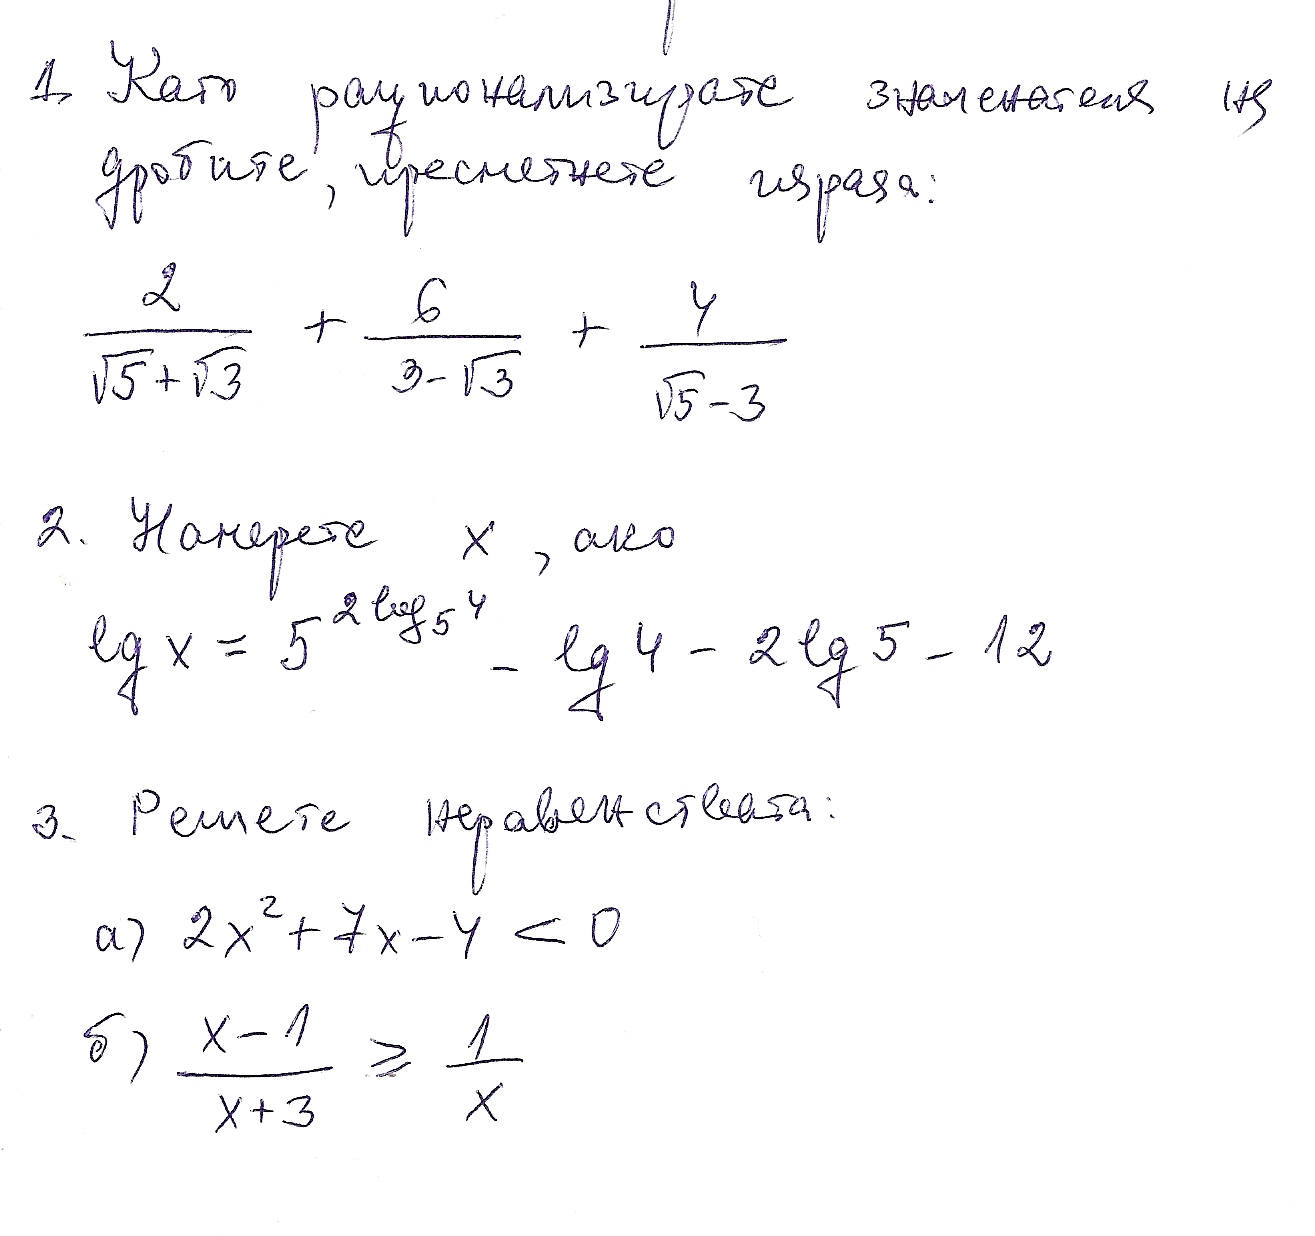 1. Като рационализирате знаменателя на
дробите, пресметнете израза:
2/(√5+√3) + 6/(3-√3) + 4/(√5-3)
2. Намерете x, ако
lg x = 5^(2log₅4) - lg 4 - 2lg 5 - 12
3. Решете неравенствата:
а) 2x² + 7x - 4 < 0
б) (x-1)/(x+3) ≥ 1/x